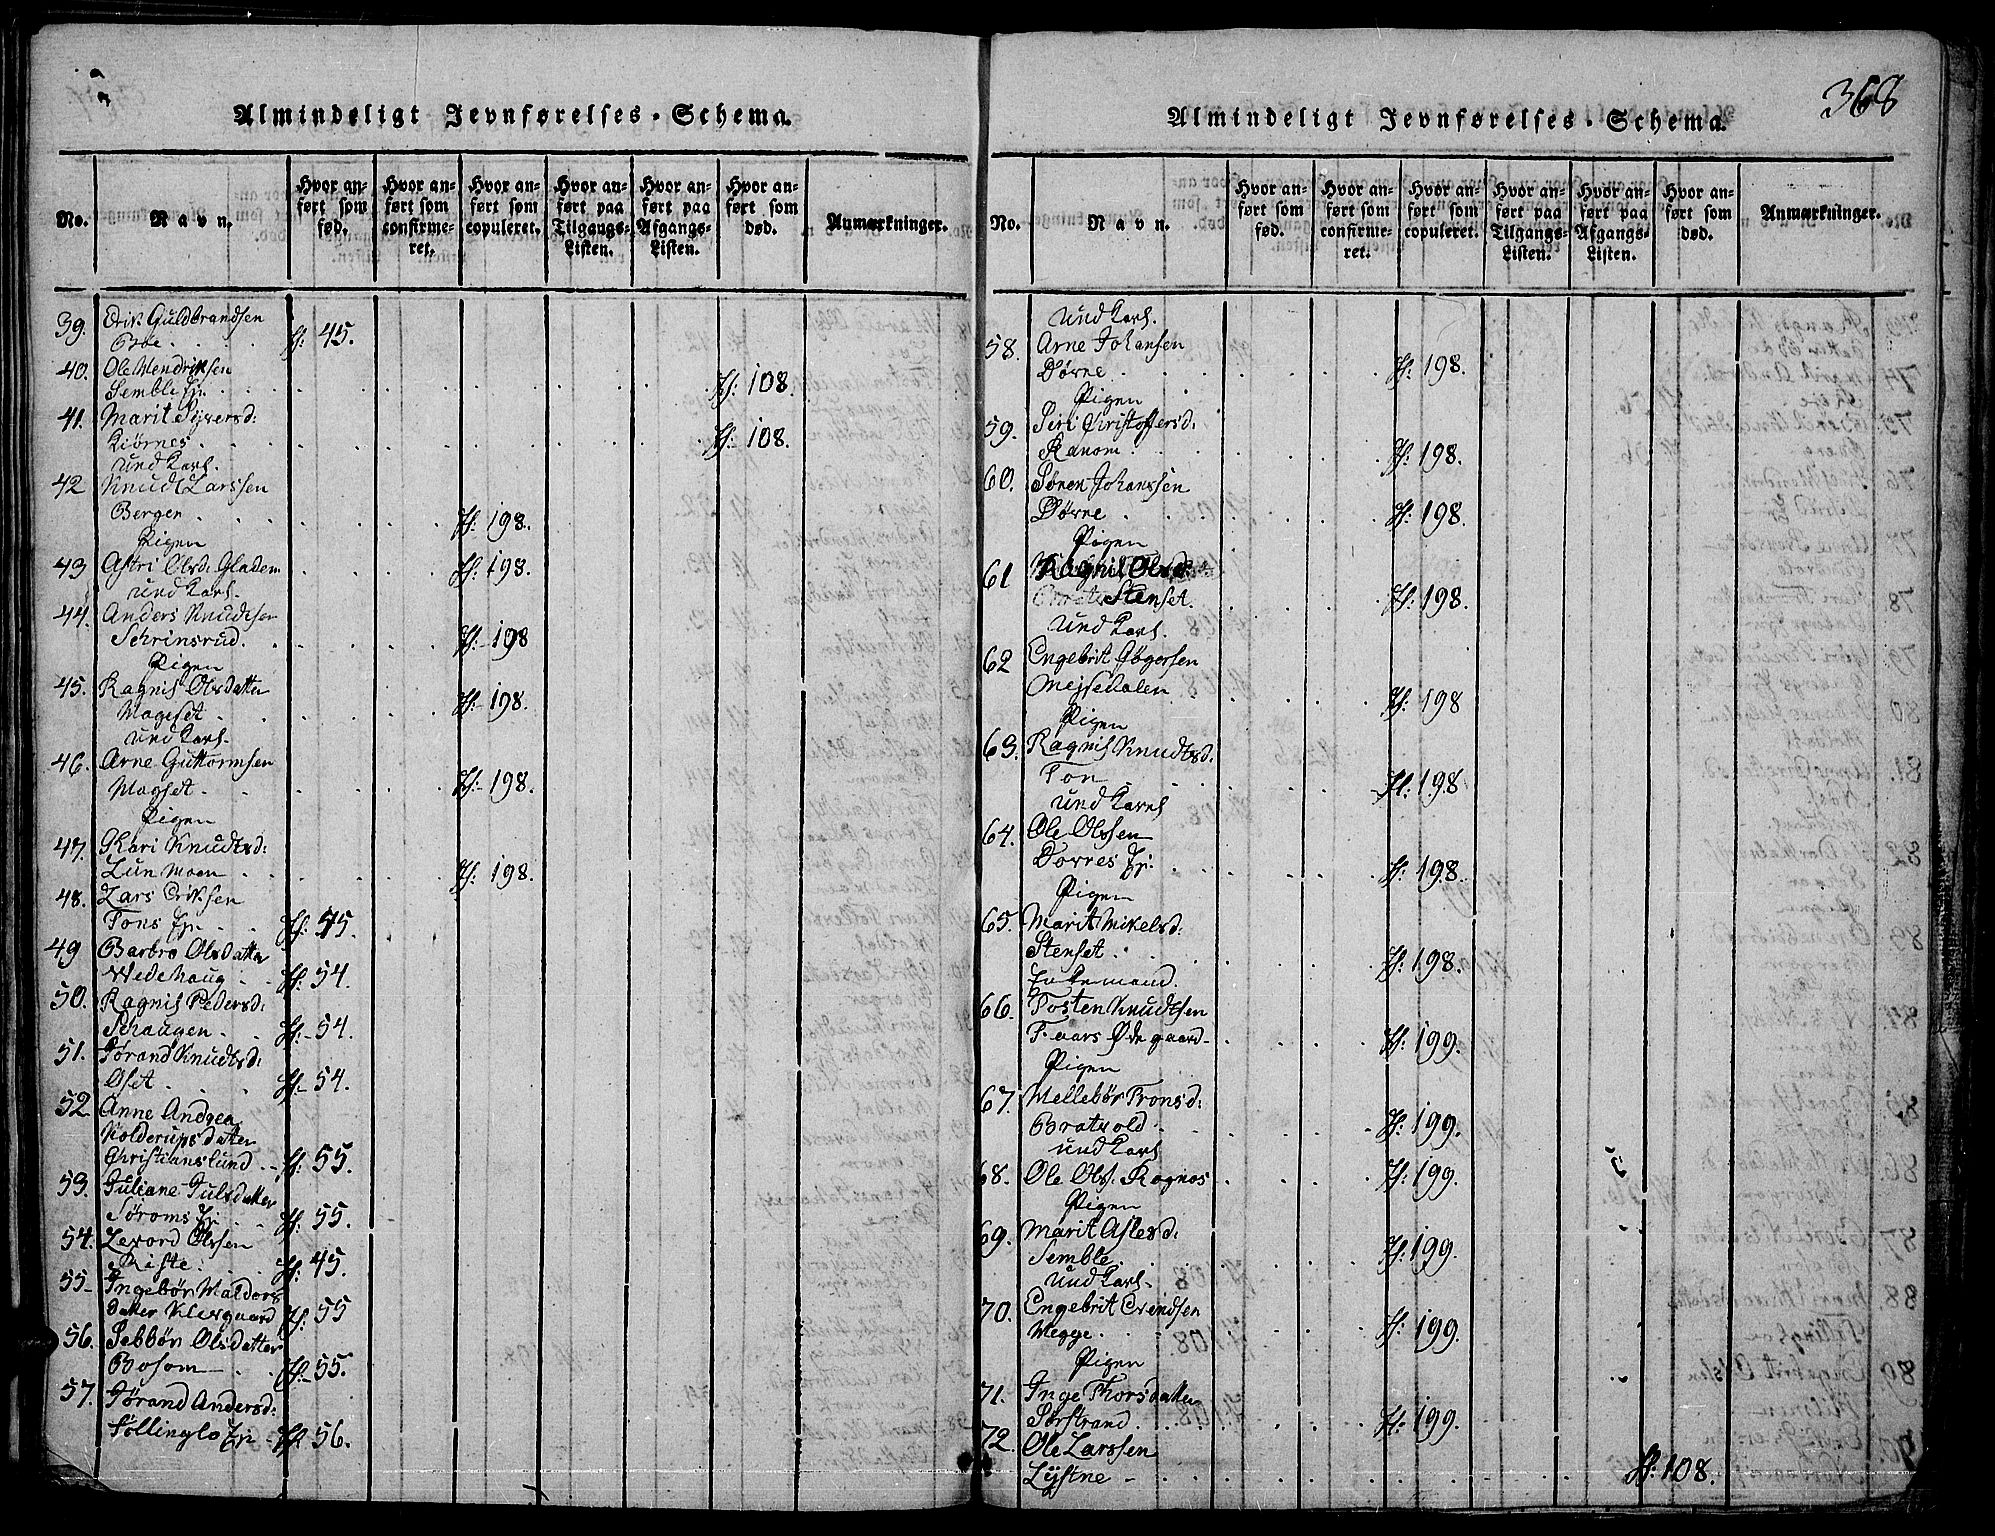 368
Almindeligt Jevnførelses-Schema.
No.
Navn.
Hvor anført som fød.
Hvor anført som confirmeret.
Hvor anført som copuleret.
Hvor anført paa Tilgangs-Listen.
Hvor anført paa Afgangs-Listen.
Hvor anført som død.
Anmærkninger.
39. Erik Guldbrandsen
. . . . 45.
40. Ole Hendriksen
Semble Ej. . . . 108.
41. Marit Syversd:
Kiørnes . . . 108.
Und Karl.
42 Knudt Larssen
Bergen . . . 198.
Pigen
43 Astri Olsd: Gladem . . . 198.
und Karl.
44. Anders Knudtsen
Schrinsrud. . . . 198
Pigen
45. Ragnil Olsdatter
Mageset . . . 198.
und Karl.
46. Arne Guttormsen
Magset . . . 198.
Pigen
47. Kari Knudtsd:
Lun Moen . . . 198.
48. Lars Eriksen
Tons Ej. . . 45.
49 Barbro Olsdatter
Wedehaug . 54.
50. Ragnil Pedersd:
Schaugen . . 54.
51. Jørand Knudtsd:
Øset . . . 54.
52 Anne Andrea
Kolderupsdatter
Christianslund . . 55.
53. Juliane Julsdatter
Søroms Ej. . . 55.
54. Levord Olssen
Riste . . . 45.
55. Ingebør Haldors
datter Klevgaard 55
56. Sebbør Olsdatter
Bosom . . 55.
57. Jørand Andersd:
Søllinglo Ej. 56.
Almindeligt Jevnførelses-Schema.
No.
Navn.
Hvor anført som fød.
Hvor anført som confirmeret.
Hvor anført som copuleret.
Hvor anført paa Tilgangs-Listen.
Hvor anført paa Afgangs-Listen.
Hvor anført som død.
Anmærkninger.
und Karl.
58. Arne Johansen
Børne . . . 198.
Pigen
59. Siri Christoffersd:
Ranom . . . 198.
60. Søren Johanssen
Børne . . . 198.
Pigen
61 Ragnil Olsd:
Stenset. . . . 198.
und Karl.
62 Engebrit Gøgersen
Mejsedalen . . . 198
Pigen
63. Ragnil Knudtsd.
Ton . . . 198
und Karl
64. Ole Olssen
Dorres Ej. . . . 198.
Pigen
65. Marit Mikelsd:
Stenset . . . 198.
Enkemand.
66. Tosten Knudtsen
Faars Ødegaard . . . 199.
Pigen
67. Mellebør Tronsd:
Bratvold . . . 199.
und Karl
68. Ole Ols. Rognos . . . 199.
Pigen
69. Marit Aslesd:
Semble . . . 199.
und Karl.
70. Engebrit Erendsen
Megge . . . 199.
Pigen
71. Inge Thorsdatter
Sørstrand . . . 199.
72. Ole Larssen
Lystne . . . 108.